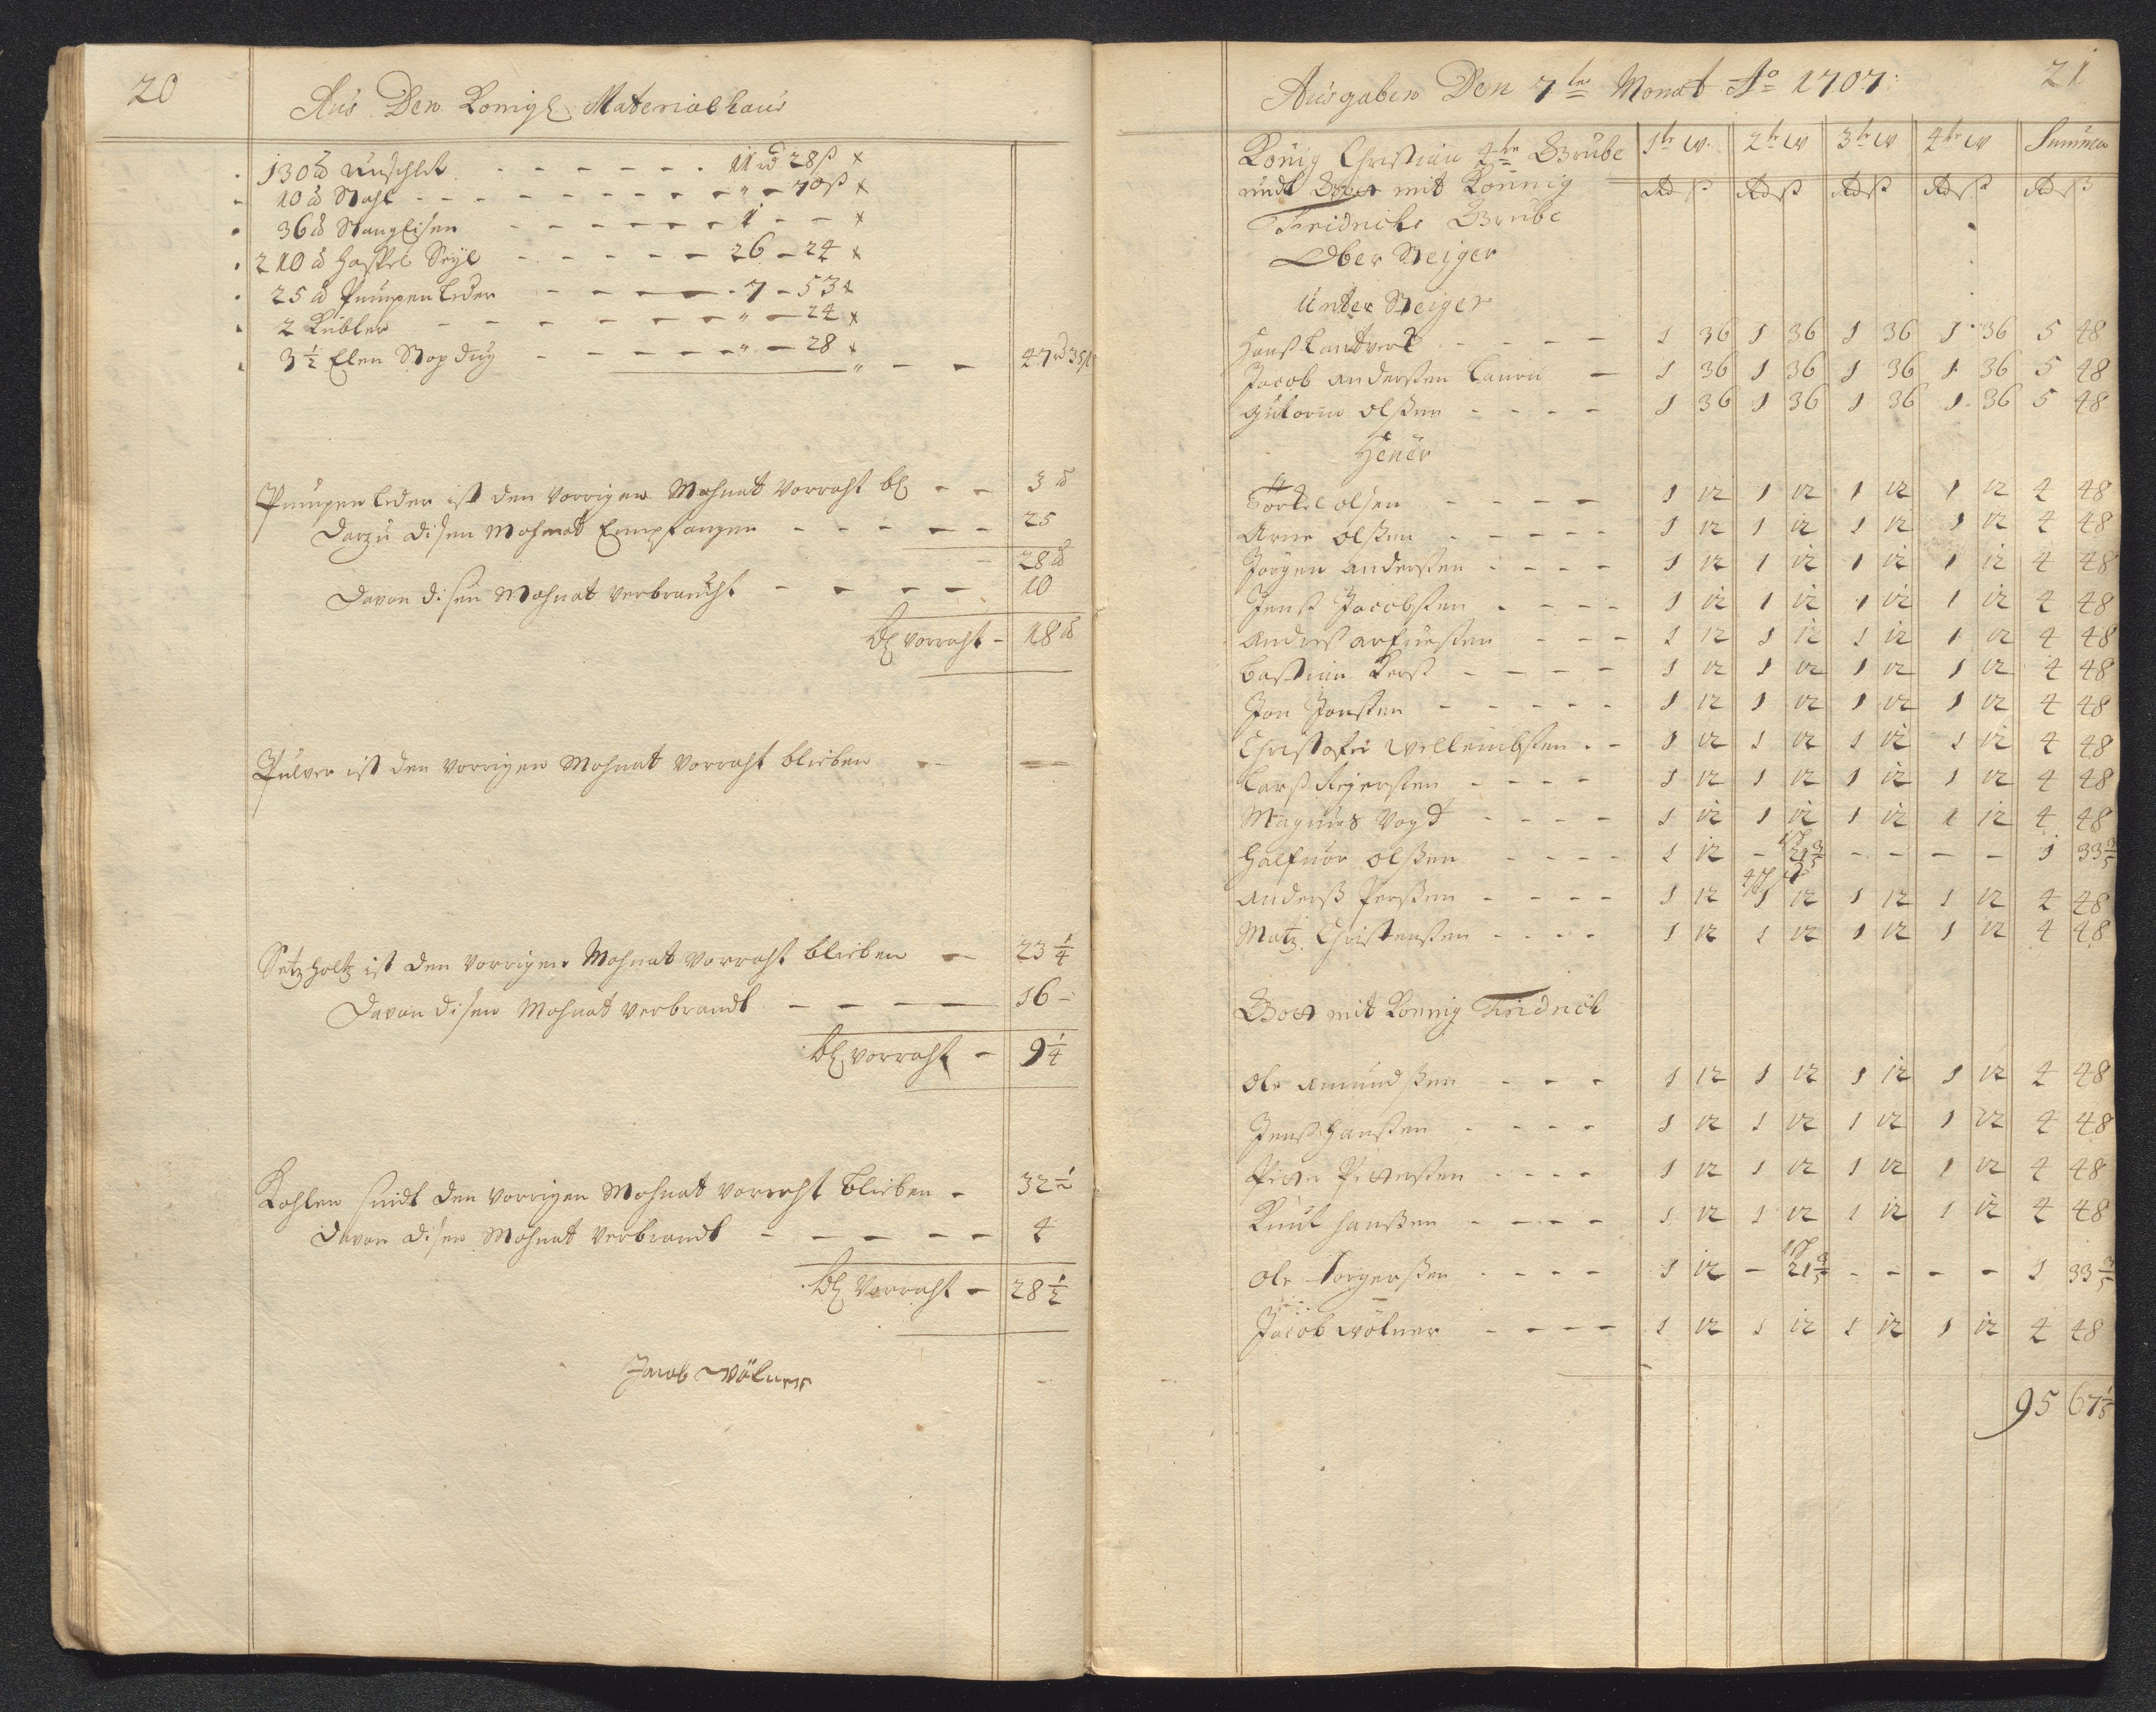 20
Aus Den Konigl Materialhaus
130 ℔ Unschlit - - - - - - 11 rd 28 ß x
10 ℔ Stahl - - - - - - - - " - 70 ß x
36 ℔ Stangeisen - - - - - - 1 - - x
210 ℔ Haspel Seyl - - - - - 26 - 24 x
25 ℔ Pumpenleder - - - - - 7 - 53 x
2 Kübler - - - - - - - - " - 24 x
3½ Elen Stop dug - - - - - " - 28 x - - 47 rd 35 ß
Pumpenleder ist den vorrigen Mohnat Vorraht bl - - 3 ℔
Darzu disen Mohnat Empfangen - - - - - 25
28 ℔
Davon disen Mohnat verbraucht - - - - - 10
bl vorraht - 18 ℔
Pulver ist den vorrigen Mohnat vorraht blieben - - —
Setzholtz ist den vorrigen Mohnat vorraht blieben - 23¼
Davon disen Mohnat verbrandt - - - - 16 -
bl vorraht - 9¼
Kohlen sindt den vorrigen Mohnat vorraht blieben - 32½
Davon disen Mohnat verbrandt - - - - - 4
bl Vorraht - 28½
Jacob Wölner
Ausgaben Den 7te Monat Ao 1707: 21
König Christian 4te Grube 1te W. 2te W 3te W 4te W Summa
undt Gott mit Könnig Rd ß Rd ß Rd ß Rd ß Rd ß
Fridrichs Grube
Ober Steiger
Unter Steiger
Hanß Landtverk - - - - 1 36 1 36 1 36 1 36 5 48
Jacob Anderßen Lauru - 1 36 1 36 1 36 1 36 5 48
Gutorm Olßen - - - - 1 36 1 36 1 36 1 36 5 48
Heüer
Torkel Olsen - - - - 1 12 1 12 1 12 1 12 4 48
Arne Olßen - - - - - 1 12 1 12 1 12 1 12 4 48
Jörgen Anderßen - - - - 1 12 1 12 1 12 1 12 4 48
Jenß Jacobßen - - - - 1 12 1 12 1 12 1 12 4 48
Andreß - - - 1 12 1 12 1 12 1 12 4 48
Bastian Kerß - - - - 1 12 1 12 1 12 1 12 4 48
Jon Jonßen - - - - - 1 12 1 12 1 12 1 12 4 48
Christofer Willembßen - - 1 12 1 12 1 12 1 12 4 48
Larß Reyerßen - - - - 1 12 1 12 1 12 1 12 4 48
Magnus Vogd - - - - 1 12 1 12 1 12 1 12 4 48
Halfuor Olßen - - - - 1 12 - 21⅗ - - - - 1 33⅗
Anderß Perßen - - - - 1 12 1 12 1 12 1 12 4 48
Matz Christenßen - - - - 1 12 1 12 1 12 1 12 4 48
Gott mit Konnig Fridrich
Ole Amundßen - - - 1 12 1 12 1 12 1 12 4 48
Jenß Hanßen - - - - 1 12 1 12 1 12 1 12 4 48
Peter Peterßen - - - - 1 12 1 12 1 12 1 12 4 48
Knut Hanßen - - - - 1 12 1 12 1 12 1 12 4 48
Ole Torgerßen - - - - 1 12 - 21⅗ - - - - 1 33⅗
Jacob Wölner - - - - 1 12 1 12 1 12 1 12 4 48
95 67⅕